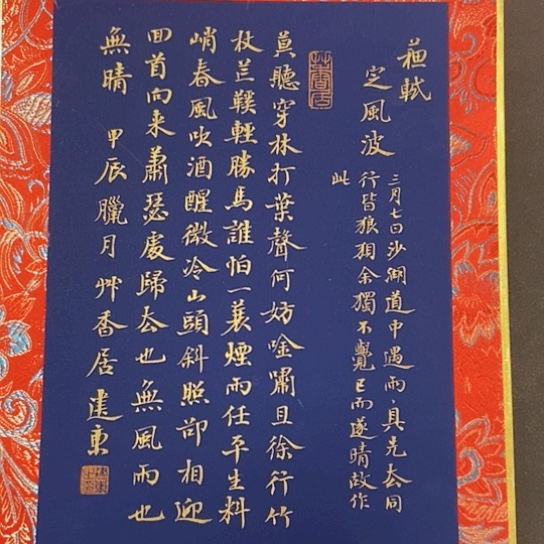 蘇軾
定風波
三月七日沙湖道中遇雨〻具先去同
行皆狼狽余獨不覺已而遂晴故作
此
艸香居
莫聽穿林打葉聲何妨唫嘯且徐行竹
杖芒鞵輕勝馬誰怕一蓑煙雨任平生料
峭春風吹酒醒微冷山頭斜照卻相迎
回首向来蕭瑟處歸去也無風雨也
無晴 甲辰臘月艸香居建東